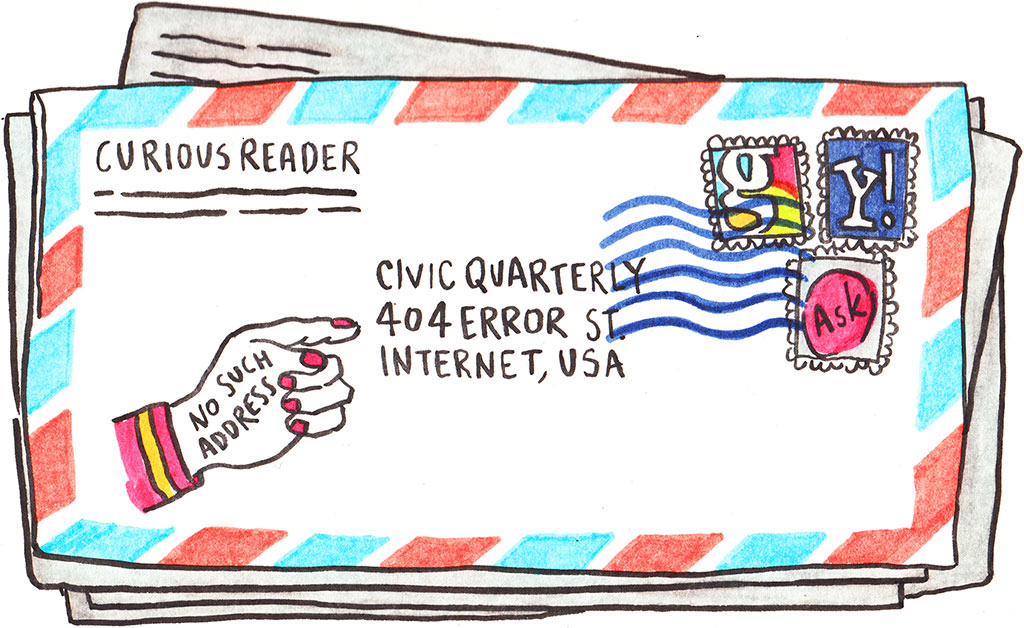 CURIOUS READER
g
Y!
Ask
CIVIC QUARTERLY
404 ERROR ST.
INTERNET, USA
NO SUCH
ADDRESS